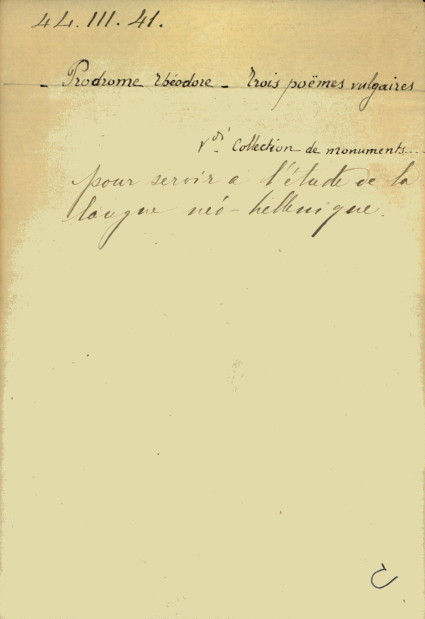 44. III. 41.
- Prodrome théodore - trois poëmes vulgaires
V.di Collection de monuments....
pour servir a l'étude de la
langue néo-hellenique.